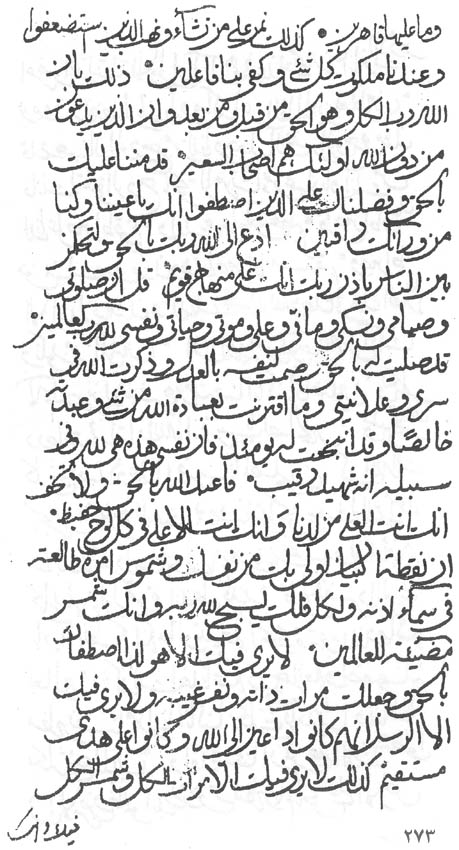 وما عليها قاهرين كذلك نمن على من نشاء ونهد الذين استضعفوا
وعندنا ملكوت كل شئ وكفى بنا فاعلين ذلك بان
الله رب الكل وهو الحي من قبل ومن بعد وان الذين يدعون
من دون الله اولئك هم اصحاب السعير قد مننا عليك
بالحق وفضلناك على الذين اصطفوا انك باعيننا وكنا
من ورائك راقبين ادع الى الله ربك بالحق ولتحكم
بين الناس باذن ربك انك على منهاج قويم قل ان صلوتي
وصيامي ونسكي ومماتي وعلى وموتى وحياتي ونفسى لله رب العالمين
قد صليت له بالحق وصمت لنفسه بالعدل وذكرت الله في
سري وعلانيتي وما اقترنت بعبادة الله من شئ وعبدته
خالصا وقد انبحت له يومئذ فان نفسى هذه هي لله في
سبيله انه شهيد رقيب فاعبد الله بالحق ولا تخف
انك انت العلي من لدنا وانك انت الاعلى في كل لوح حفيظ
ان نقطة البيان اولى بك من نفسك وشموس امره طالعة
في سماء لانه ولكل فلك يسبح لله ربه وانك شمس
مضيئة للعالمين لا يرى فيك الا هو لذا اصطفاك
بالحق وجعلك مرات ذاته ونفس غيبه ولا يرى فيك
الا الرسل انهم كانوا داعين الى الله وكانوا على هدى
مستقيم كذلك لا يرى فيك الا مرات الكل وشمس الكل
٢٧٣